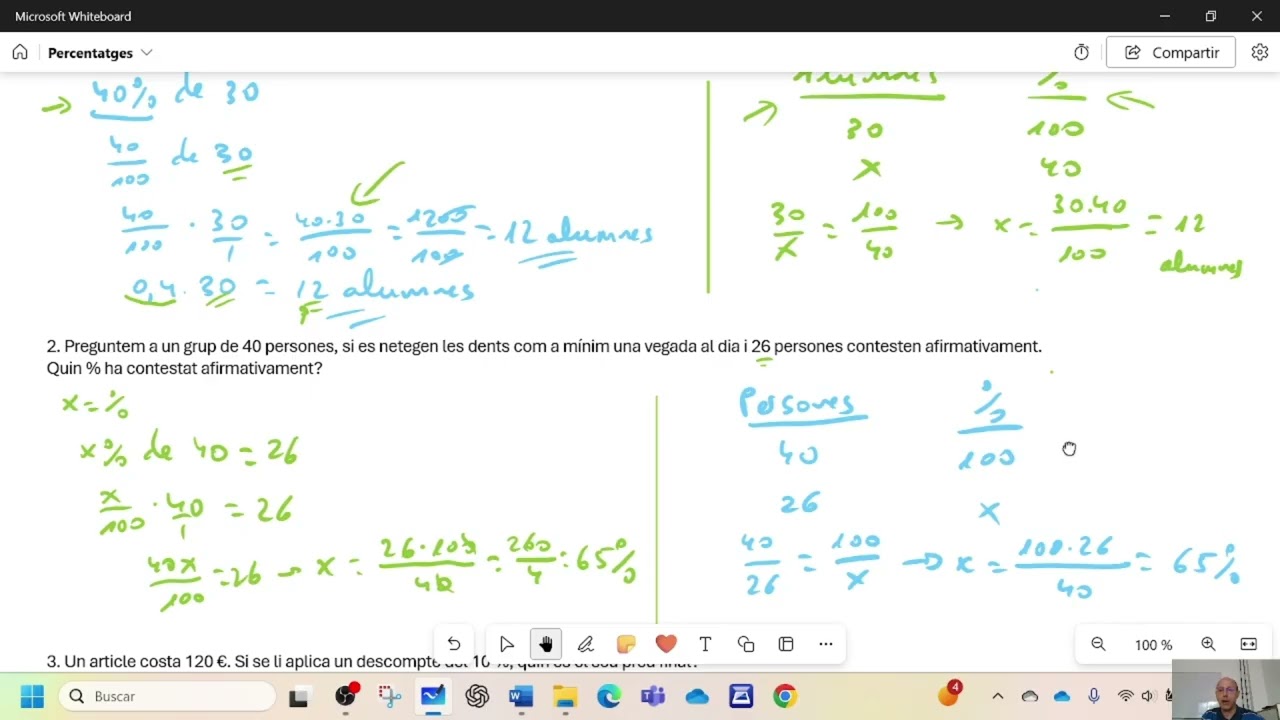 Microsoft Whiteboard
Percentatges
Compartir
40% de 30
40/100 de 30
40/100 · 30/1 = 40·30/100 = 1200/100 = 12 alumnes
0,4 · 30 = 12 alumnes
Alumnes %
30 100
x 40
30/x = 100/40 → x = 30.40/100 = 12
alumnes
2. Preguntem a un grup de 40 persones, si es netegen les dents com a mínim una vegada al dia i 26 persones contesten afirmativament.
Quin % ha contestat afirmativament?
x = %
x% de 40 = 26
x/100 · 40/1 = 26
40x/100 = 26 → x = 26·100/40 = 260/4 = 65%
Persones %
40 100
26 x
40/26 = 100/x → x = 100·26/40 = 65%
100 %
3. Un article costa 120 €. Si se li aplica un descompte del 10 %, quin és el seu preu final?
Buscar
4